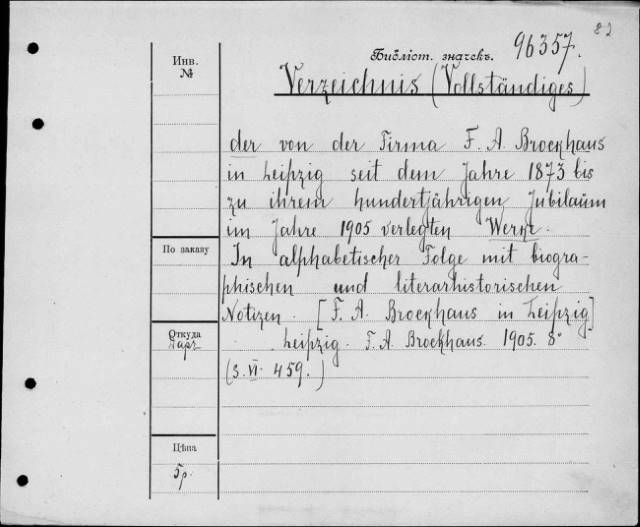 82
Библіот. значекъ. 96357.
Инв.
№
Verzeichnis (Vollständiges)
der von der Firma F. A. Brockhaus
in Leipzig seit dem Jahre 1873 bis
zu ihrem hundertjährigen Jubiläum
im Jahre 1905 verlegten Werke.
По заказу
In alphabetischer Folge mit biogra-
phischen und literarhistorischen
Notizen. [F. A. Brockhaus in Leipzig]
Откуда
Leipzig. F. A. Brockhaus. 1905. 8°
(S. VI. 459.)
Цѣна
5р.